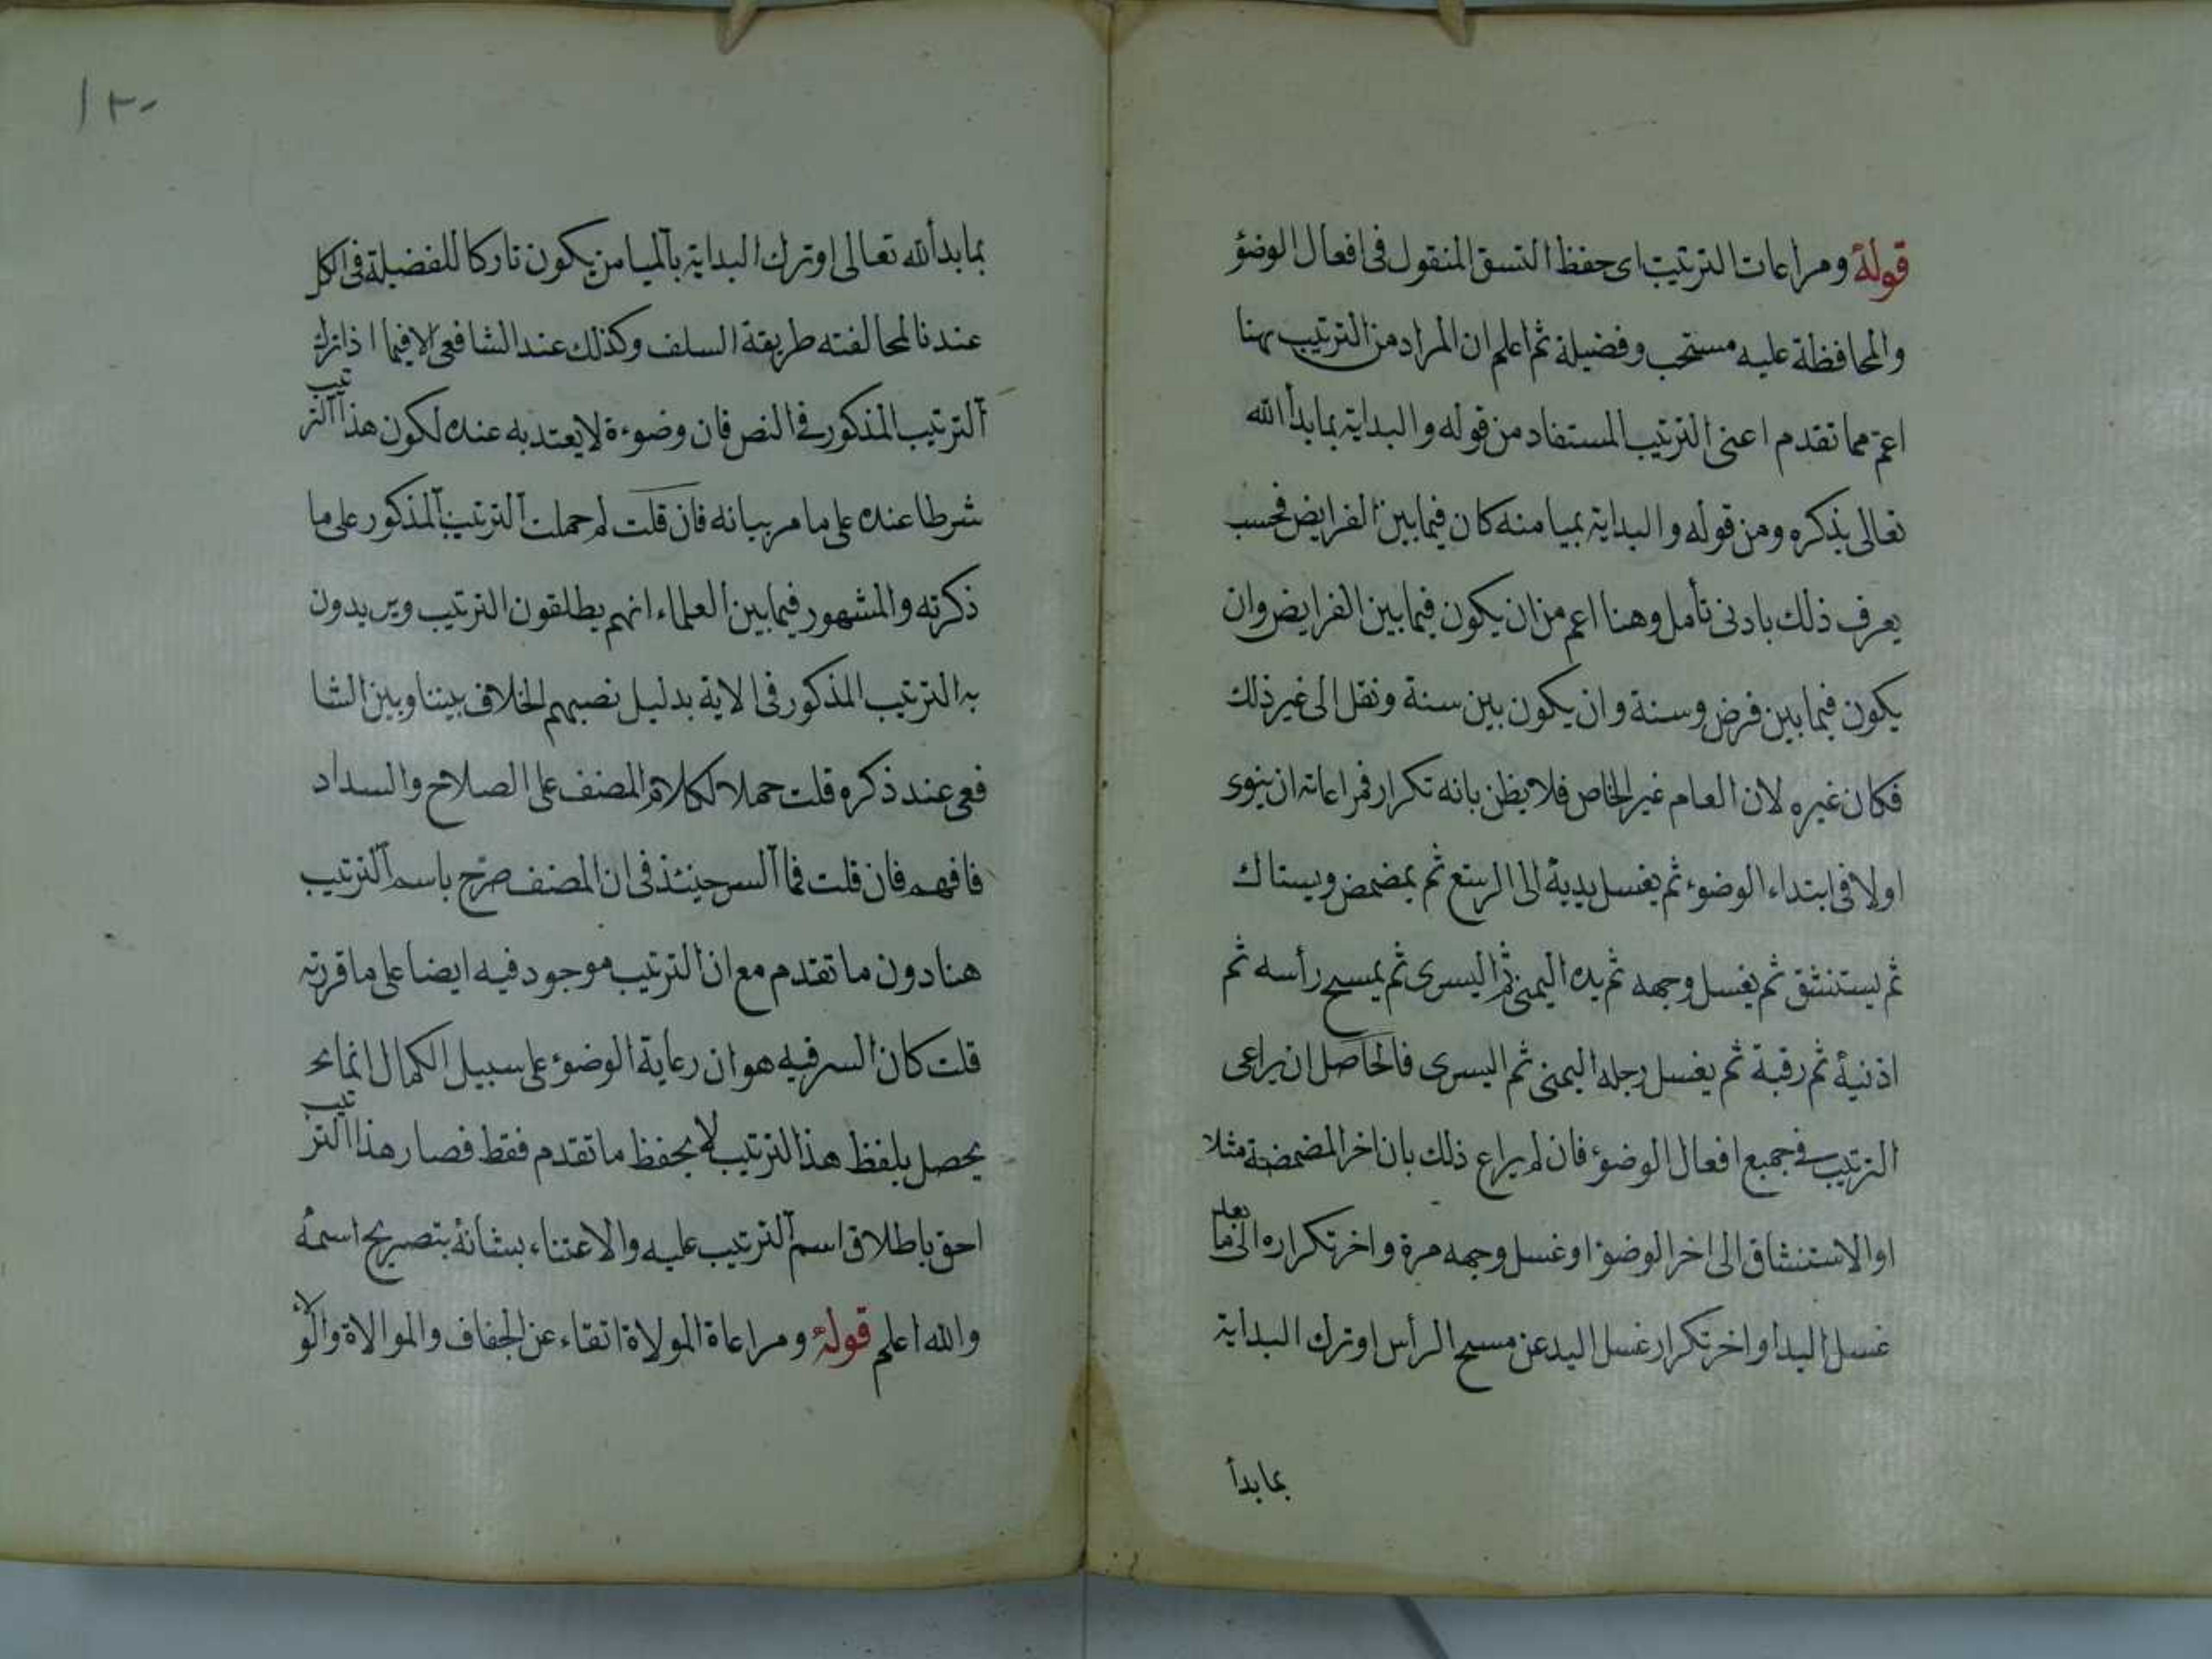 قوله ومراعات الترتيب اى حفظ النسق المنقول فى افعال الوضؤ
والمحافظة عليه مستحب وفضيلة ثم اعلم ان المراد من الترتيب ههنا
اعم مما تقدم اعنى الترتيب المستفاد من قوله والبداية بما بدأ الله
تعالى بذكره ومن قوله والبداية بميامنه كان فيما بين الفرايض فحسب
يعرف ذلك بادنى تأمل وهنا اعم من ان يكون فيما بين الفرايض وان
يكون فيما بين فرض وسنة وان يكون بين سنة ونفل الى غير ذلك
فكان غيره لان العام غير الخاص فلا يظن بانه تكرار فمراعاته ان ينوى
اولا فى ابتداء الوضوء ثم يغسل يديه الى الرسغ ثم يمضمض ويستاك
ثم يستنشق ثم يغسل وجهه ثم يده اليمنى ثم اليسرى ثم يمسح رأسه ثم
اذنيه ثم رقبة ثم يغسل رجله اليمنى ثم اليسرى فالحاصل ان يراعى
الترتيب فى جميع افعال الوضوء فان لم يراع ذلك بان اخر المضمضة مثلا
او الاستنشاق الى اخر الوضوء او غسل وجهه مرة واخر تكراره الى ما بعد
غسل اليد او اخر تكرار غسل اليد عن مسح الرأس او ترك البداية
بما بدأ
١٣٠
بما بدأ الله تعالى او ترك البداية بالميامن يكون تاركا للفضيلة فى الكل
عندنا لمخالفته طريقة السلف وكذلك عند الشافعى الا فيما اذا ترك
الترتيب المذكور فى النص فان وضوءه لا يعتد به عنده لكون هذا الترتيب
شرطا عنده على ما مر بيانه فان قلت لم حملت الترتيب المذكور على ما
ذكرته والمشهور فيما بين العلماء انهم يطلقون الترتيب ويريدون
به الترتيب المذكور فى الاية بدليل نصبهم الخلاف بيننا وبين الشا
فعى عند ذكره قلت حملا لكلام المصنف على الصلاح والسداد
فافهم فان قلت فما السر حينئذ فى ان المصنف صرح باسم الترتيب
هنا دون ما تقدم مع ان الترتيب موجود فيه ايضا على ما قررته
قلت كان السر فيه هو ان رعاية الوضوء على سبيل الكمال انما يح
يحصل بلفظ هذا الترتيب لا بحفظ ما تقدم فقط فصار هذا الترتيب
احق باطلاق اسم الترتيب عليه والاعتناء بشانه بتصريح اسمه
والله اعلم قوله ومراعاة المولاة اتقاء عن الجفاف والموالاة والولا